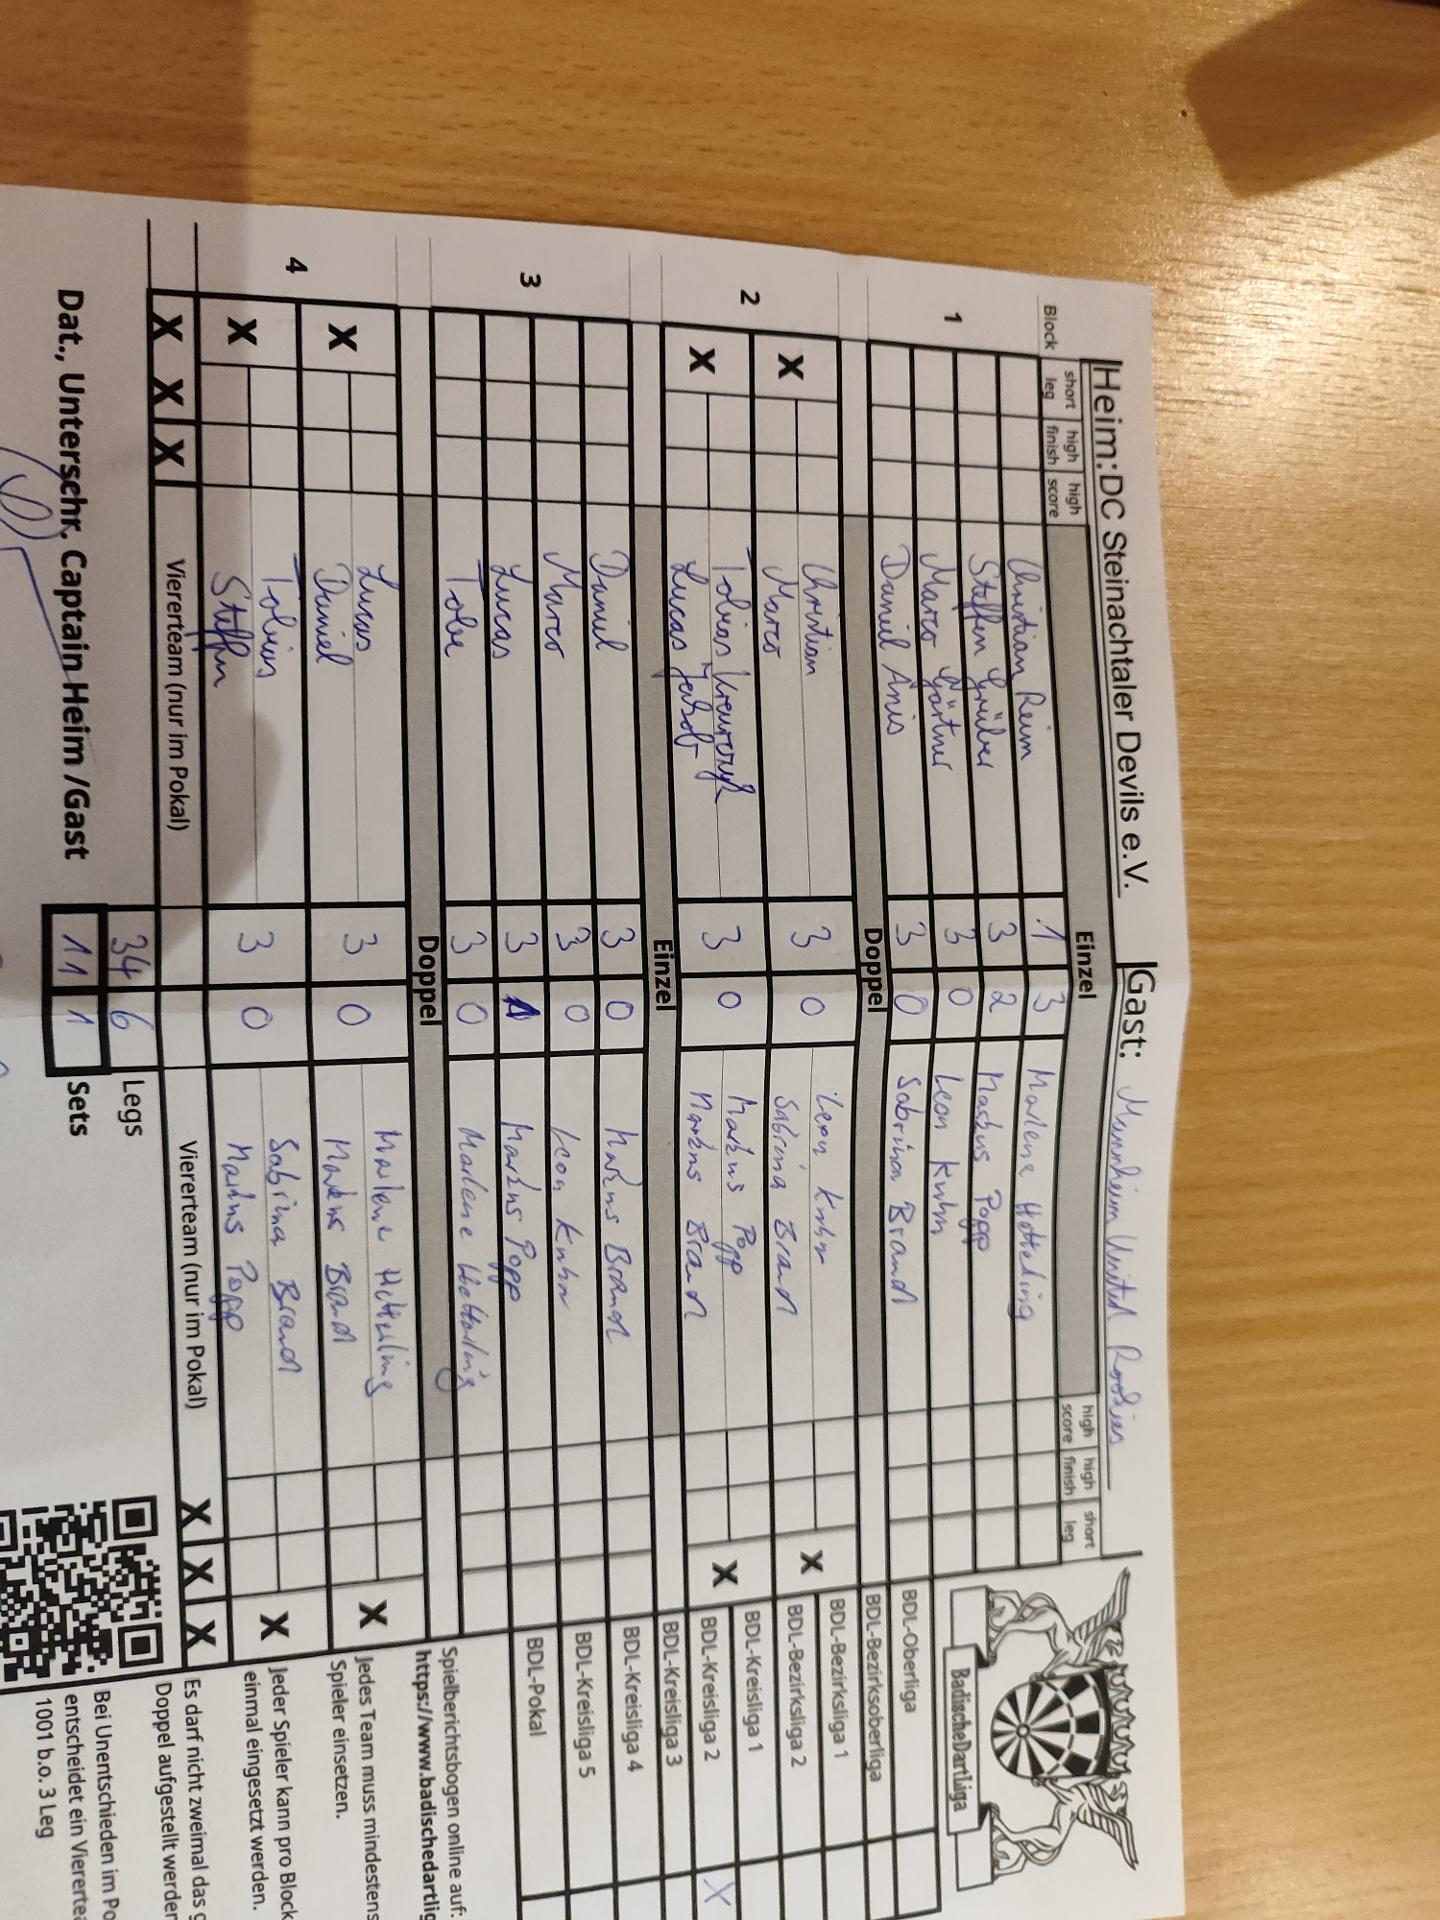 Heim: DC Steinachtaler Devils e.V. Gast: Mannheim United Rookies
Block short leg high finish high score Einzel high score high finish short leg
1
Christian Reim 1 3 Marlene Hottding
Steffen Grüber 3 2 Markus Popp
Marco Gärtner 3 0 Leon Kuhn
Daniel Anis 3 0 Sabrina Brand
Doppel
2
X Christian 3 0 Leon Kuhn X
Marco Sabrina Brand
X Tobias 3 0 Markus Popp X
Lucas Markus Brand
Einzel
3
Daniel 3 0 Markus Brand
Marco 3 0 Leon Kuhn
Lucas 3 1 Markus Popp
Tobe 3 0 Marlene
Doppel
4
X Lucas 3 0 Marlene X
Daniel Markus Brand
X Tobias 3 0 Sabrina Brand X
Steffen Markus Popp
X X X Viererteam (nur im Pokal) Viererteam (nur im Pokal) X X X
34 6 Legs
Dat., Unterschr. Captain Heim /Gast 11 1 Sets
BadischeDartLiga
BDL-Oberliga
BDL-Bezirksoberliga
BDL-Bezirksliga 1
BDL-Bezirksliga 2
BDL-Kreisliga 1
BDL-Kreisliga 2 X
BDL-Kreisliga 3
BDL-Kreisliga 4
BDL-Kreisliga 5
BDL-Pokal
Spielberichtsbogen online auf:
https://www.badischedartlig
Jedes Team muss mindestens
Spieler einsetzen.
Jeder Spieler kann pro Block
einmal eingesetzt werden.
Es darf nicht zweimal das g
Doppel aufgestellt werden
Bei Unentschieden im Po
entscheidet ein Vierertea
1001 b.o. 3 Leg